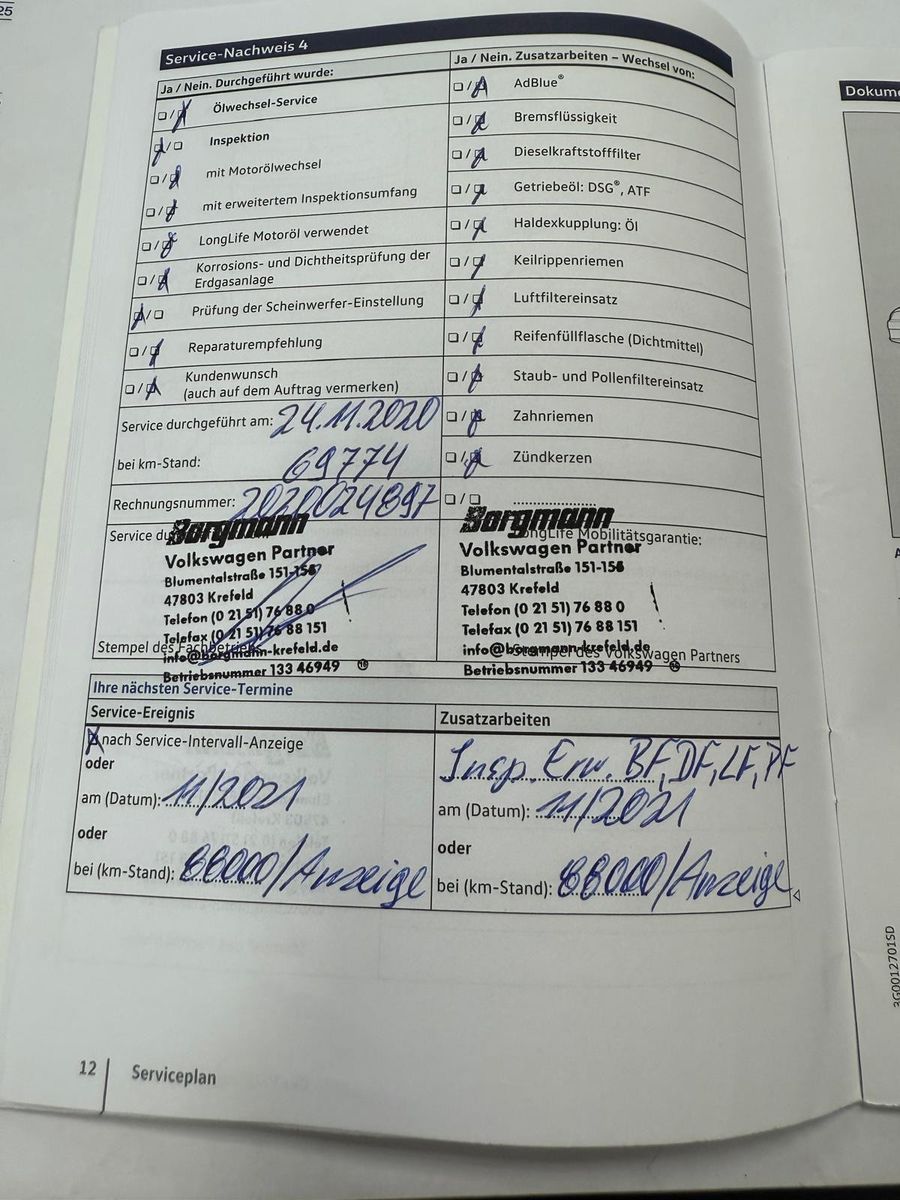 25
Service-Nachweis 4
Ja / Nein. Durchgeführt wurde:
Ölwechsel-Service
Inspektion
mit Motorölwechsel
mit erweitertem Inspektionsumfang
LongLife Motoröl verwendet
Korrosions- und Dichtheitsprüfung der
Erdgasanlage
Prüfung der Scheinwerfer-Einstellung
Reparaturempfehlung
Kundenwunsch
(auch auf dem Auftrag vermerken)
Service durchgeführt am: 24.11.2020
bei km-Stand: 69774
Rechnungsnummer: 2020024897
Ja / Nein. Zusatzarbeiten – Wechsel von:
AdBlue®
Bremsflüssigkeit
Dieselkraftstofffilter
Getriebeöl: DSG®, ATF
Haldexkupplung: Öl
Keilrippenriemen
Luftfiltereinsatz
Reifenfüllflasche (Dichtmittel)
Staub- und Pollenfiltereinsatz
Zahnriemen
Zündkerzen
Service du
Borgmann
Volkswagen Partner
Blumentalstraße 151-155
47803 Krefeld
Telefon (0 21 51) 76 88 0
Telefax (0 21 51) 76 88 151
info@borgmann-krefeld.de
Stempel des Fachbetriebs
Betriebsnummer 133 46949
LongLife Mobilitätsgarantie:
Borgmann
Volkswagen Partner
Blumentalstraße 151-155
47803 Krefeld
Telefon (0 21 51) 76 88 0
Telefax (0 21 51) 76 88 151
info@borgmann-krefeld.de
Stempel des Volkswagen Partners
Betriebsnummer 133 46949
Ihre nächsten Service-Termine
Service-Ereignis
nach Service-Intervall-Anzeige
oder
am (Datum): 11/2021
oder
bei (km-Stand): 88000/Anzeige
Zusatzarbeiten
Insp. Erw. BF, DF, LF, PF
am (Datum): 11/2021
oder
bei (km-Stand): 88000/Anzeige
12
Serviceplan
Dokume
3G0012701SD